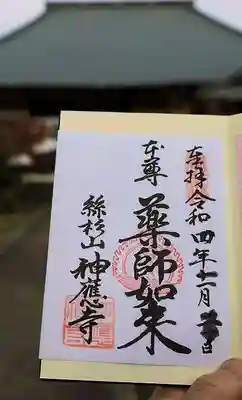 奉拝 令和四年十一月二十日
本尊
薬師如来
絲杉山 神應寺